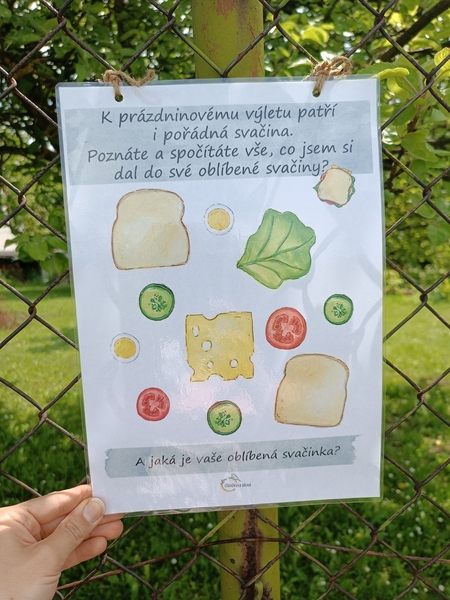 K prázdninovému výletu patří
i pořádná svačina.
Poznáte a spočítáte vše, co jsem si
dal do své oblíbené svačiny?
A jaká je vaše oblíbená svačinka?